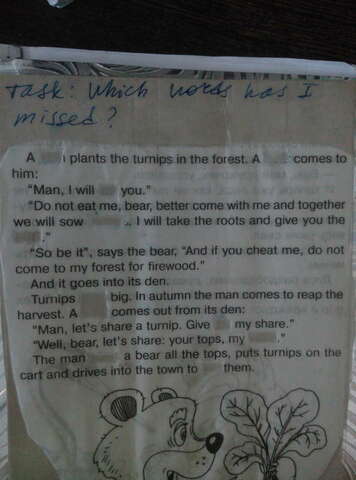 Task: Which words has I
missed?
A plants the turnips in the forest. A comes to
him:
"Man, I will you."
"Do not eat me, bear, better come with me and together
we will sow . I will take the roots and give you the
."
"So be it", says the bear, "And if you cheat me, do not
come to my forest for firewood."
And it goes into its den.
Turnips big. In autumn the man comes to reap the
harvest. A comes out from its den:
"Man, let's share a turnip. Give my share."
"Well, bear, let's share: your tops, my ."
The man a bear all the tops, puts turnips on the
cart and drives into the town to them.